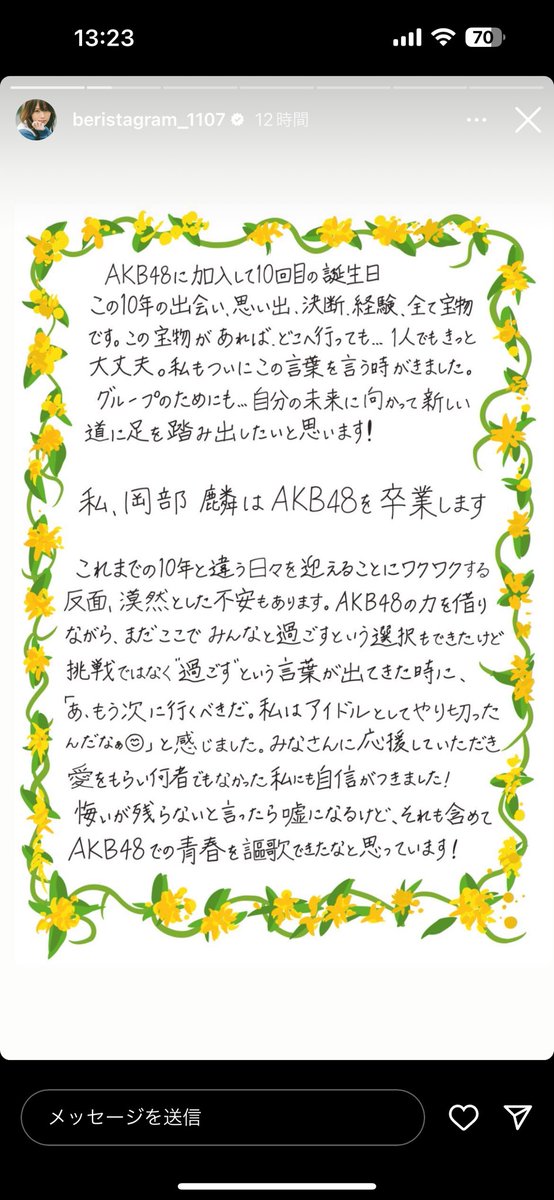 13:23
70
beristagram_1107 12時間
AKB48に加入して10回目の誕生日
この10年の出会い、思い出、決断、経験、全て宝物
です。この宝物があれば、どこへ行っても... 1人でもきっと
大丈夫。私もついにこの言葉を言う時がきました。
グループのためにも...自分の未来に向かって新しい
道に足を踏み出したいと思います!
私、岡部 麟は AKB48を卒業します
これまでの10年と違う日々を迎えることにワクワクする
反面、漠然とした不安もあります。AKB48の力を借り
ながら、まだここで みんなと過ごすという選択もできたけど
挑戦ではなく"過ごす"という言葉が出てきた時に、
「あ、もう次に行くべきだ。私はアイドルとしてやり切った
んだなぁ☺」と感じました。みなさんに応援していただき
愛をもらい何者でもなかった私にも自信がつきました!
悔いが残らないと言ったら嘘になるけど、それも含めて
AKB48での青春を謳歌できたなと思っています!
メッセージを送信